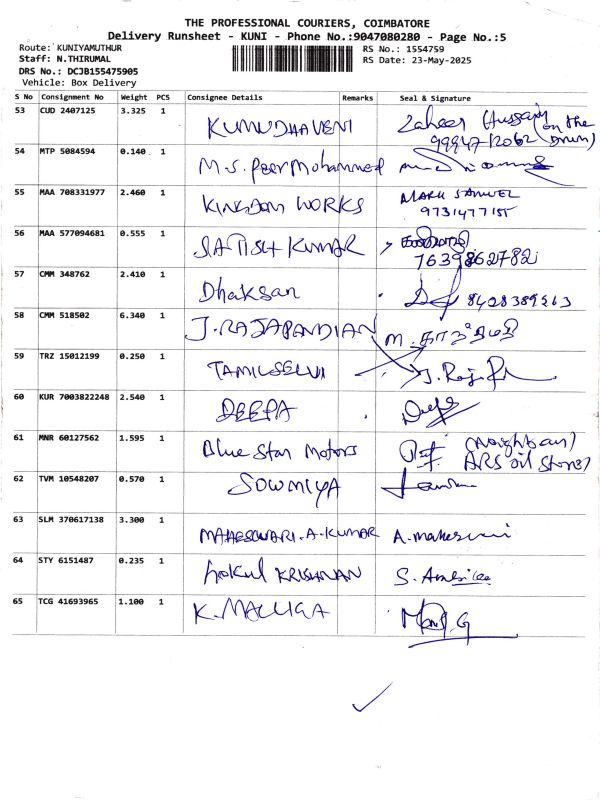 THE PROFESSIONAL COURIERS, COIMBATORE
Delivery Runsheet - KUNI - Phone No.:9047080280 - Page No.:5
Route: KUNIYAMUTHUR RS No.: 1554759
Staff: N.THIRUMAL RS Date: 23-May-2025
DRS No.: DCJB155475905
Vehicle: Box Delivery
S No Consignment No Weight PCS Consignee Details Remarks Seal & Signature
53 CUD 2407125 3.325 1 KUMUDHAVENI Zaheer Hussain (on the
99947 12062
54 MTP 5084594 0.140 1 M.S. Peer Mohammed
55 MAA 708331977 2.460 1 KINGDOM WORKS MARK SAMUEL
9731477155
56 MAA 577094681 0.555 1 SATISH KUMAR
7639862782
57 CMM 348762 2.410 1 Dhaksan 8428389263
58 CMM 518502 6.340 1 J. RAJAPANDIAN M.
59 TRZ 15012199 0.250 1 TAMILSELVI J. Raja
60 KUR 7003822248 2.540 1 DEEPA Deepa
61 MNR 60127562 1.595 1 Blue Star Motors (Neighbour)
ARS oil Store)
62 TVM 10548207 0.570 1 SOWMIYA
63 SLM 370617138 3.300 1 MAHESWARI.A.KUMAR A. Maheswari
64 STY 6151487 0.235 1 Gokul KRISHNAN S.
65 TCG 41693965 1.100 1 K. MALLIGA